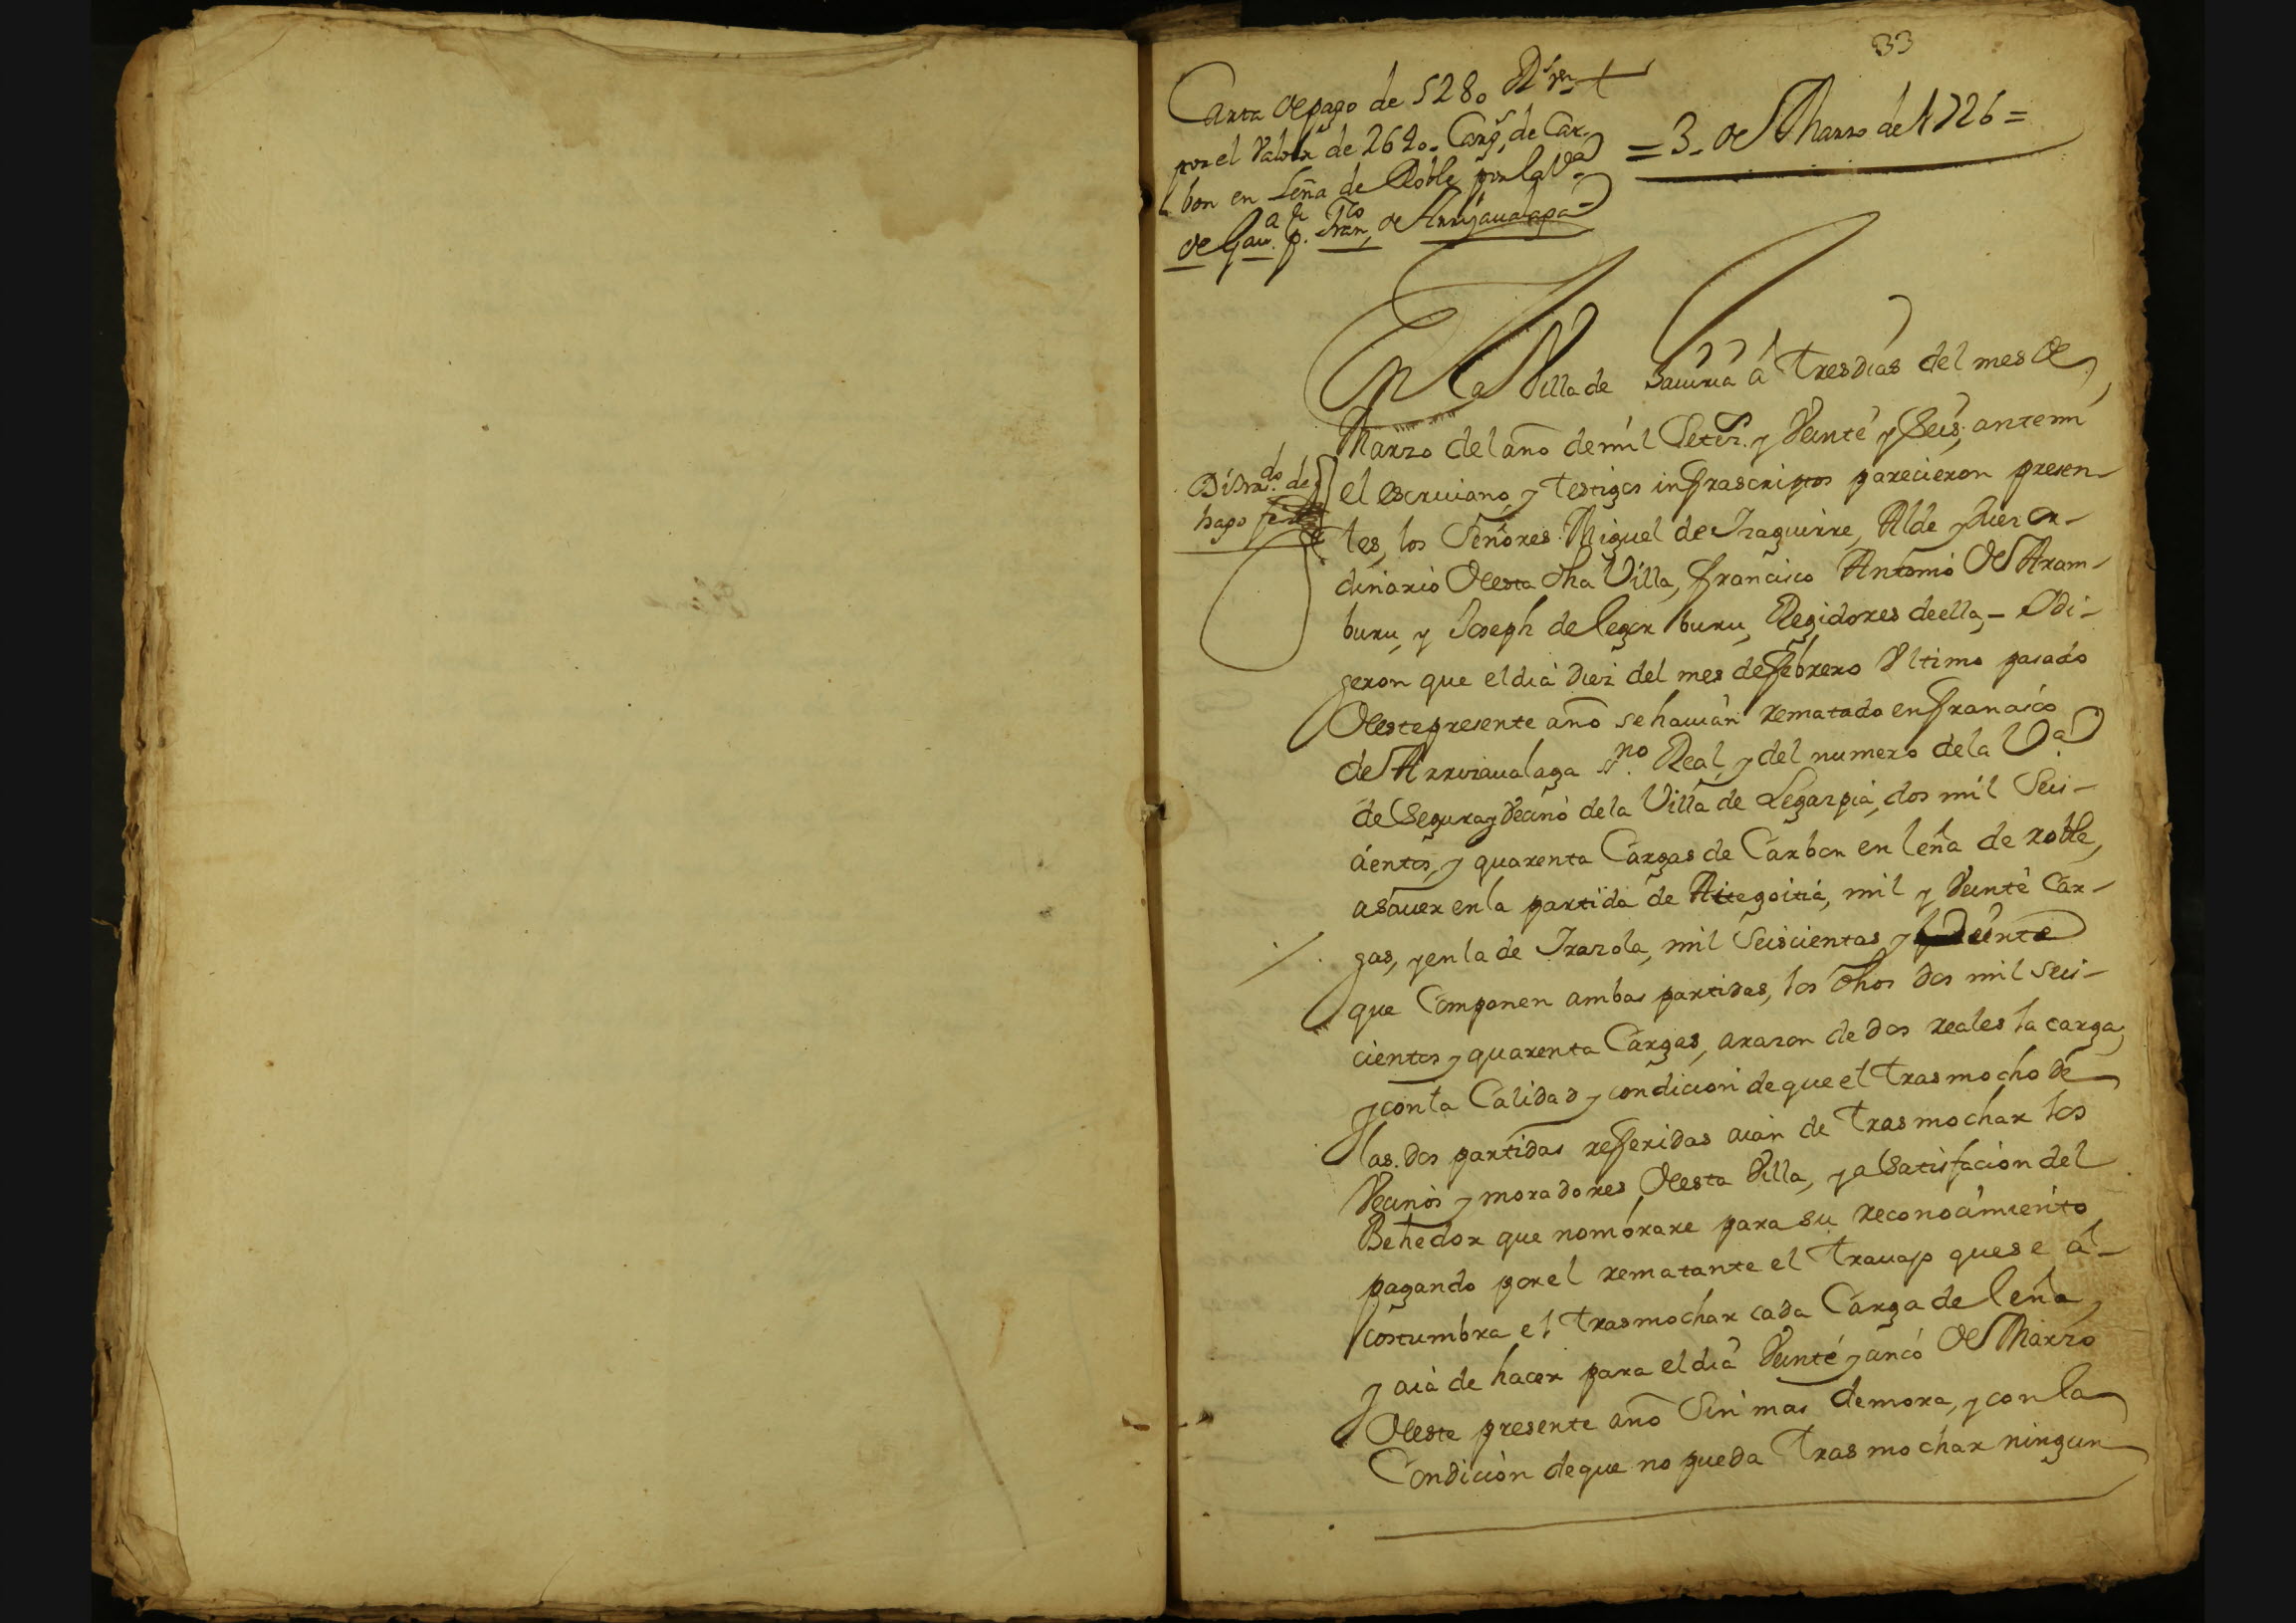 33
Carta de pago de 5280 Rs vn
por el Valor de 2640. Cargs de Car-
bon en Leña de Roble por la Va
de Gaua. pr. Franco de Arrijaualaga
= 3. de Marzo de 1726 =
En la Villa de Gauiria a tres dias del mes de
Marzo del año de mil Seteztos. y Veinte y Seis, ante mi
Dístrado. de
hago fee
el escriuano, y testigos infrascriptos parecieron presen-
tes, los Señores Miguel de Izaguirre, Alde y Juez or-
dinario de esta dha Villa, Francisco Antonio de Aram-
buru, y Joseph de legor buru, Regidores de ella,- Y di-
jeron que el dia diez del mes de febrero Vltimo pasado
de este presente año se hauian rematado en Francisco
de Arruiaualaga sno. Real, y del numero de la Va
de Segura y Vecino de la Villa de Legazpia, dos mil Seis-
cientos, y quarenta Cargas de Carbon en leña de roble,
asauer en la partida de Aitegoitia, mil y Veinte Car-
gas, y en la de Irazola, mil Seiscientas y Veinte
que Componen ambas partidas, los dhos dos mil seis-
cientos y quarenta Cargas, arazon de dos reales la carga,
y con la Calidad y condicion de que el trasmocho de
las dos partidas referidas aian de trasmochar los
Vecinos y moradores de esta Villa, y a Satisfacion del
Behedor que nombrare para su reconocimiento
pagando por el rematante el trauajo que se a-
costumbra el trasmochar cada Carga de leña,
y aia de hacer para el dia Veinte y cinco de Marzo
de este presente año Sin mas demora, y con la
Condicion de que no pueda trasmochar ningun